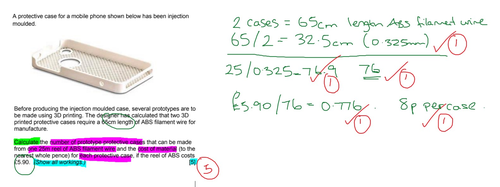 A protective case for a mobile phone shown below has been injection
moulded.
2 cases = 65cm length ABS filament wire
65/2 = 32.5cm (0.325mm) 1
25/0.325 = 76.9 1 76 1
Before producing the injection moulded case, several prototypes are to
be made using 3D printing. The designer has calculated that two 3D
printed protective cases require a 65cm length of ABS filament wire for
manufacture.
£5.90/76 = 0.776 1 8p per case 1
Calculate the number of prototype protective cases that can be made
from one 25m reel of ABS filament wire and the cost of material (to the
nearest whole pence) for each protective case, if the reel of ABS costs
£5.90. (Show all workings.) [5]
5